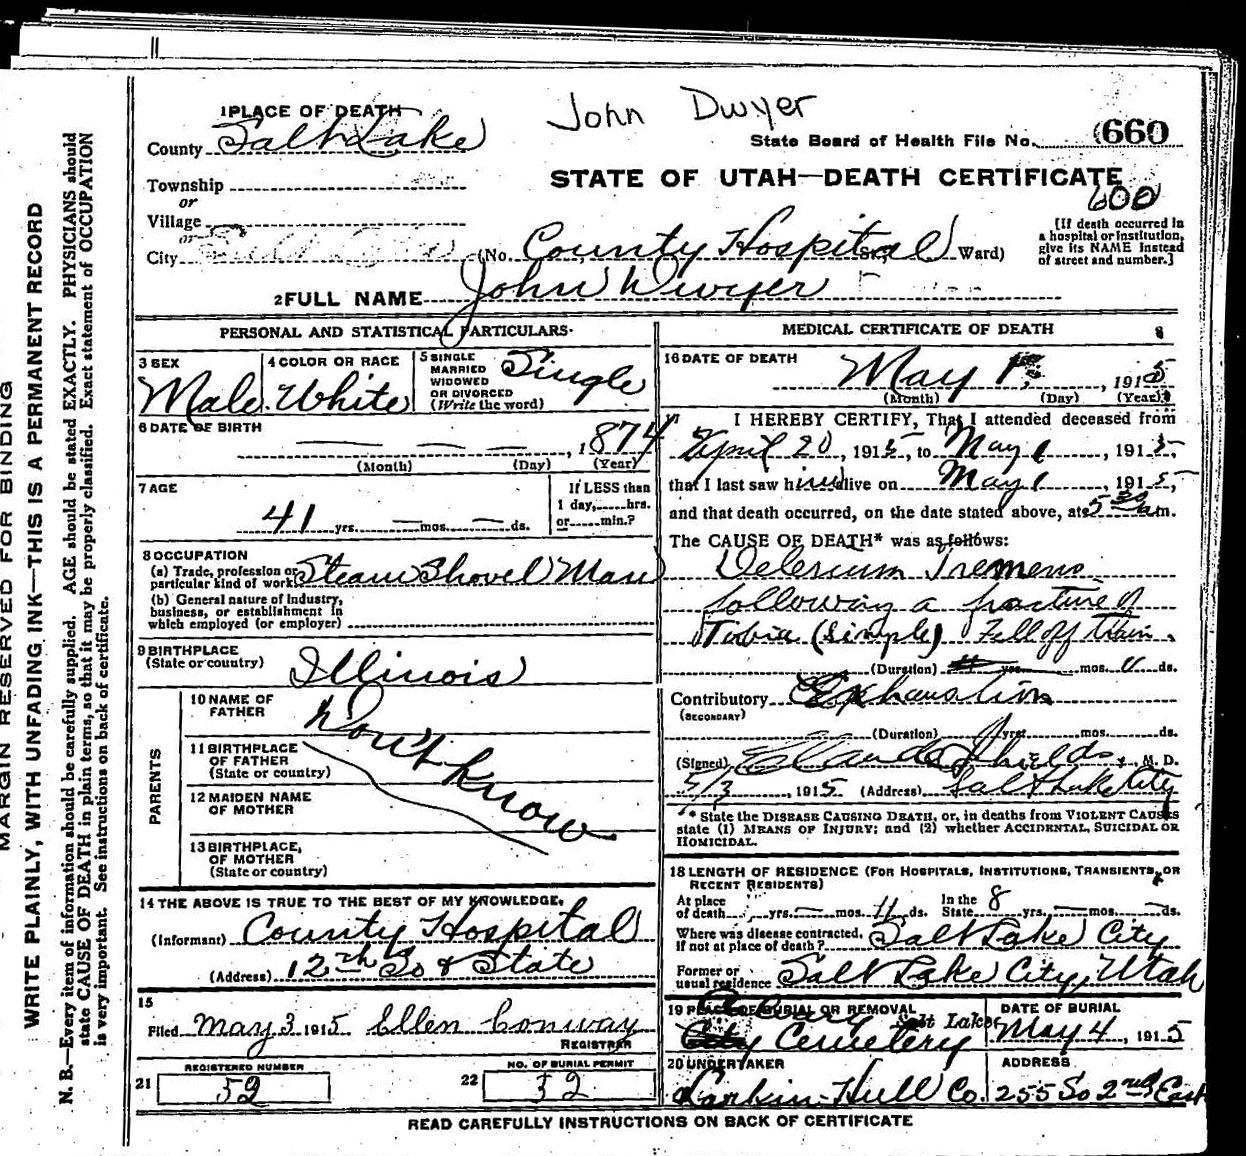 John Dwyer
1 PLACE OF DEATH
County Salt Lake
State Board of Health File No. 660
Township
or
STATE OF UTAH—DEATH CERTIFICATE
600
Village
or
City (No. County Hospital St.; Ward)
[If death occurred in
a hospital or institution,
give its NAME instead
of street and number.]
2 FULL NAME John Dwyer
PERSONAL AND STATISTICAL PARTICULARS
3 SEX
Male
4 COLOR OR RACE
White
5 SINGLE
MARRIED
WIDOWED
OR DIVORCED
(Write the word)
Single
6 DATE OF BIRTH
— — —, 1874
(Month) (Day) (Year)
7 AGE
41 yrs. — mos. — ds.
If LESS than
1 day, hrs.
or min.?
8 OCCUPATION
(a) Trade, profession or
particular kind of work Steam Shovel Man
(b) General nature of industry,
business, or establishment in
which employed (or employer)
9 BIRTHPLACE
(State or country) Illinois
PARENTS
10 NAME OF
FATHER
11 BIRTHPLACE
OF FATHER
(State or country)
12 MAIDEN NAME
OF MOTHER
13 BIRTHPLACE,
OF MOTHER
(State or country)
Don't Know
14 THE ABOVE IS TRUE TO THE BEST OF MY KNOWLEDGE,
(Informant) County Hospital
(Address) 12th So & State
15
Filed May 3 1915 Ellen Conway
REGISTRAR
REGISTERED NUMBER
21 52
NO. OF BURIAL PERMIT
22 52
MEDICAL CERTIFICATE OF DEATH
16 DATE OF DEATH
May 1, 1915
(Month) (Day) (Year)
I HEREBY CERTIFY, That I attended deceased from
April 20, 1915, to May 1, 1915,
that I last saw him alive on May 1, 1915,
and that death occurred, on the date stated above, at 5 30 a m.
The CAUSE OF DEATH* was as follows:
Delerium Tremens
following a fracture of
Tibia (simple) Fell off train.
(Duration) yrs. mos. 11 ds.
Contributory Exhaustion
(SECONDARY)
(Duration) yrs. mos. ds.
(Signed) Claude Shields, M. D.
5/3, 1915 (Address) Salt Lake City
* State the DISEASE CAUSING DEATH, or, in deaths from VIOLENT CAUSES
state (1) MEANS OF INJURY; and (2) whether ACCIDENTAL, SUICIDAL OR
HOMICIDAL.
18 LENGTH OF RESIDENCE (FOR HOSPITALS, INSTITUTIONS, TRANSIENTS, OR
RECENT RESIDENTS)
At place
of death yrs. — mos. 11 ds.
In the
State 8 yrs. — mos. — ds.
Where was disease contracted,
if not at place of death? Salt Lake City
Former or
usual residence Salt Lake City, Utah
19 PLACE OF BURIAL OR REMOVAL
Calvary Salt Lake
City Cemetery
DATE OF BURIAL
May 4, 1915
20 UNDERTAKER
Larkin-Hull Co.
ADDRESS
255 So 2nd East
READ CAREFULLY INSTRUCTIONS ON BACK OF CERTIFICATE
MARGIN RESERVED FOR BINDING
WRITE PLAINLY, WITH UNFADING INK—THIS IS A PERMANENT RECORD
N. B.—Every item of information should be carefully supplied. AGE should be stated EXACTLY. PHYSICIANS should
state CAUSE OF DEATH in plain terms, so that it may be properly classified. Exact statement of OCCUPATION
is very important. See instructions on back of certificate.